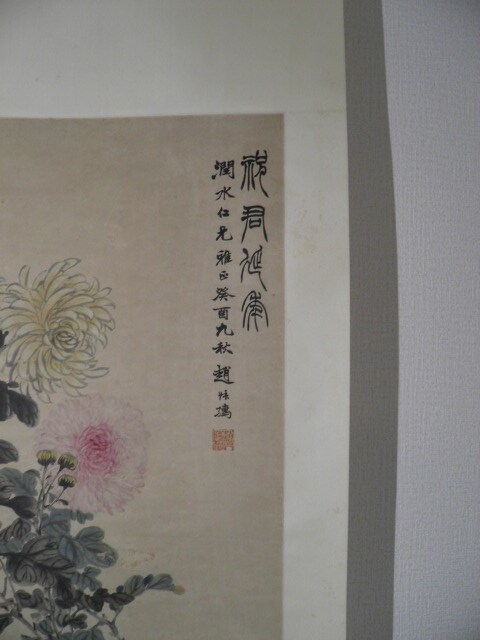 祝君延年
潤水仁兄雅正癸酉九秋趙